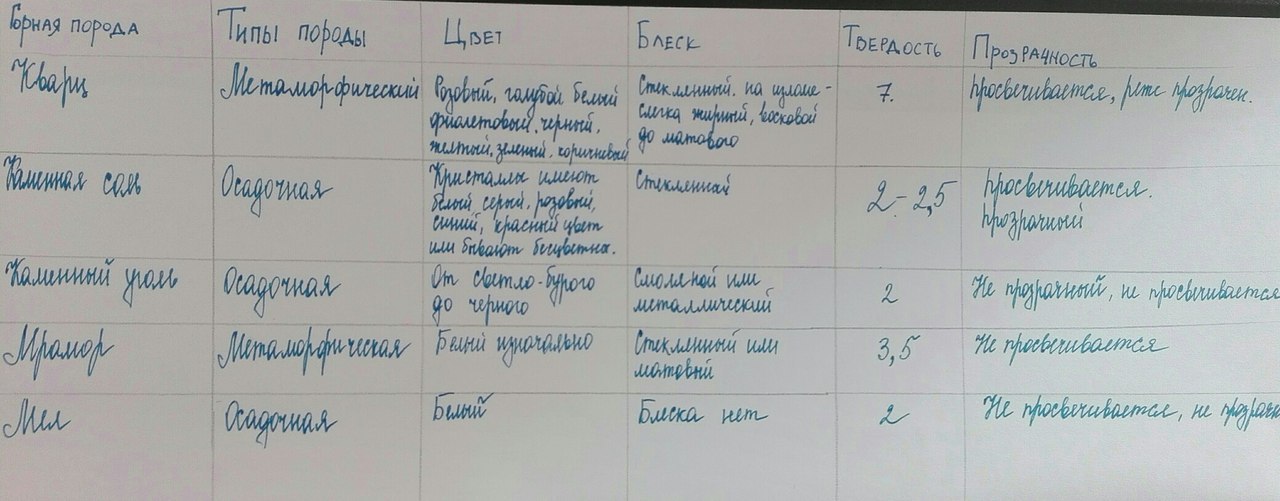 Горная порода
Типы породы
Цвет
Блеск
Твердость
Прозрачность
Кварц
Метаморфический
Розовый, голубой белый
фиолетовый, черный,
желтый, зеленый, коричневый
Стеклянный. на изломе -
слегка жирный, восковой
до матового
7.
просвечивается, реже прозрачен.
Каменная соль
Осадочная
Кристаллы имеют
белый, серый, розовый,
синий, красный цвет
или бывают бесцветны.
Стеклянный
2-2,5
просвечивается.
прозрачный
Каменный уголь
Осадочная
От светло-бурого
до черного
Смоляной или
металлический
2
Не прозрачный, не просвечивается
Мрамор
Метаморфическая
Белый изначально
Стеклянный или
матовый
3,5
Не просвечивается
Мел
Осадочная
Белый
Блеска нет
2
Не просвечивается, не прозрачн